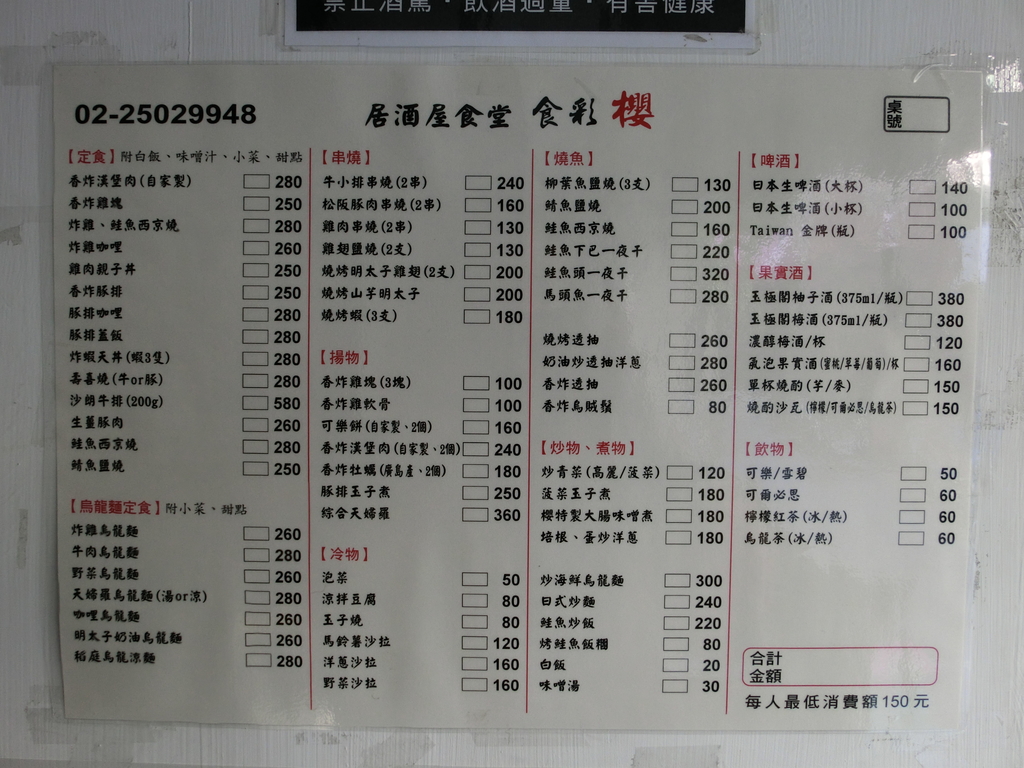 禁止酒駕·飲酒過量·有害健康
02-25029948
居酒屋食堂 食彩 櫻
桌號
【定食】附白飯、味噌汁、小菜、甜點
香炸漢堡肉(自家製) 280
香炸雞塊 250
炸雞、鮭魚西京燒 280
炸雞咖哩 260
雞肉親子丼 250
香炸豚排 250
豚排咖哩 280
豚排蓋飯 280
炸蝦天丼(蝦3隻) 280
壽喜燒(牛or豚) 280
沙朗牛排(200g) 580
生薑豚肉 260
鮭魚西京燒 280
鯖魚鹽燒 250
【烏龍麵定食】附小菜、甜點
炸雞烏龍麵 260
牛肉烏龍麵 280
野菜烏龍麵 260
天婦羅烏龍麵(湯or涼) 280
咖哩烏龍麵 260
明太子奶油烏龍麵 260
稻庭烏龍涼麵 280
【串燒】
牛小排串燒(2串) 240
松阪豚肉串燒(2串) 160
雞肉串燒(2串) 130
雞翅鹽燒(2支) 130
燒烤明太子雞翅(2支) 200
燒烤山芋明太子 200
燒烤蝦(3支) 180
【揚物】
香炸雞塊(3塊) 100
香炸雞軟骨 100
可樂餅(自家製、2個) 160
香炸漢堡肉(自家製、2個) 240
香炸牡蠣(廣島產、2個) 180
豚排玉子煮 250
綜合天婦羅 360
【冷物】
泡菜 50
涼拌豆腐 80
玉子燒 80
馬鈴薯沙拉 120
洋蔥沙拉 160
野菜沙拉 160
【燒魚】
柳葉魚鹽燒(3支) 130
鯖魚鹽燒 200
鮭魚西京燒 160
鮭魚下巴一夜干 220
鮭魚頭一夜干 320
馬頭魚一夜干 280
燒烤透抽 260
奶油炒透抽洋蔥 280
香炸透抽 260
香炸烏賊鬚 80
【炒物、煮物】
炒青菜(高麗/菠菜) 120
菠菜玉子煮 180
櫻特製大腸味噌煮 180
培根、蛋炒洋蔥 180
炒海鮮烏龍麵 300
日式炒麵 240
鮭魚炒飯 220
烤鮭魚飯糰 80
白飯 20
味噌湯 30
【啤酒】
日本生啤酒(大杯) 140
日本生啤酒(小杯) 100
Taiwan 金牌(瓶) 100
【果實酒】
玉極閣柚子酒(375ml/瓶) 380
玉極閣梅酒(375ml/瓶) 380
濃醇梅酒/杯 120
氣泡果實酒(蜜桃/草莓/葡萄)/杯 160
單杯燒酌(芋/麥) 150
燒酌沙瓦(檸檬/可爾必思/烏龍茶) 150
【飲物】
可樂/雪碧 50
可爾必思 60
檸檬紅茶(冰/熱) 60
烏龍茶(冰/熱) 60
合計
金額
每人最低消費額150元